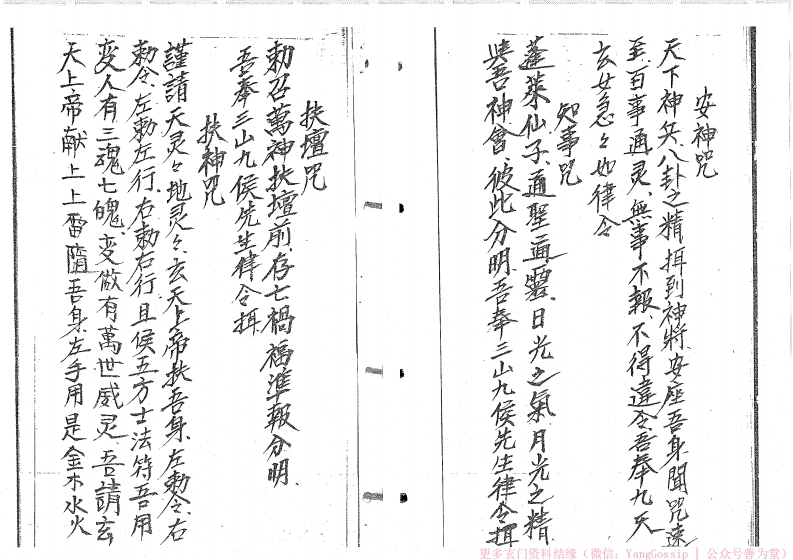 安神咒
天下神兵、八卦之精、拝到神將、安座吾身、聞咒速
至、百事通灵、無事不報、不得違令、吾奉九天
玄女急々如律令
知事咒
蓬萊仙子、通聖通靈、日光之氣、月光之精
與吾神會、彼此分明、吾奉三山九侯先生律令拝
扶壇咒
勅召萬神扶壇前、存亡禍福準報分明、
吾奉三山九侯先生律令拝
扶神咒
謹請天灵々地灵々、玄天上帝扶吾身、左勅令、右
勅令、左勅左行、右勅右行、且侯五方士法符吾用
変人有三魂七魄、变做有萬世威灵、吾請玄
天上帝献上上雷隨吾身、左手用是金木水火
更多玄门资料结缘（微信：YangGossip | 公众号善为堂）